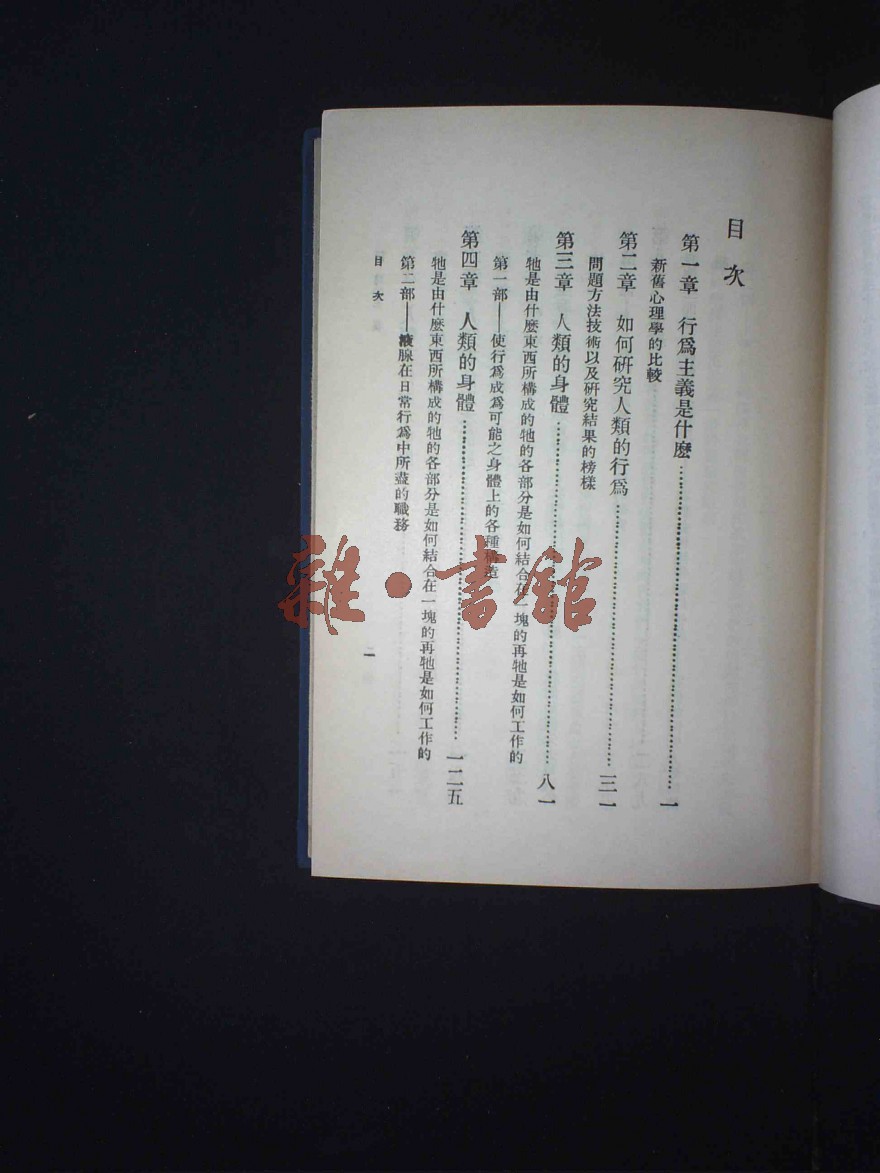 目次
第一章 行爲主義是什麽……一
新舊心理學的比較
第二章 如何研究人類的行爲……三一
問題方法技術以及研究結果的榜樣
第三章 人類的身體……八一
牠是由什麽東西所構成的牠的各部分是如何結合在一塊的再牠是如何工作的
第一部——使行爲成爲可能之身體上的各種構造
第四章 人類的身體……一二五
牠是由什麽東西所構成的牠的各部分是如何結合在一塊的再牠是如何工作的
第二部——液腺在日常行爲中所盡的職務
目次
一
雜·書館